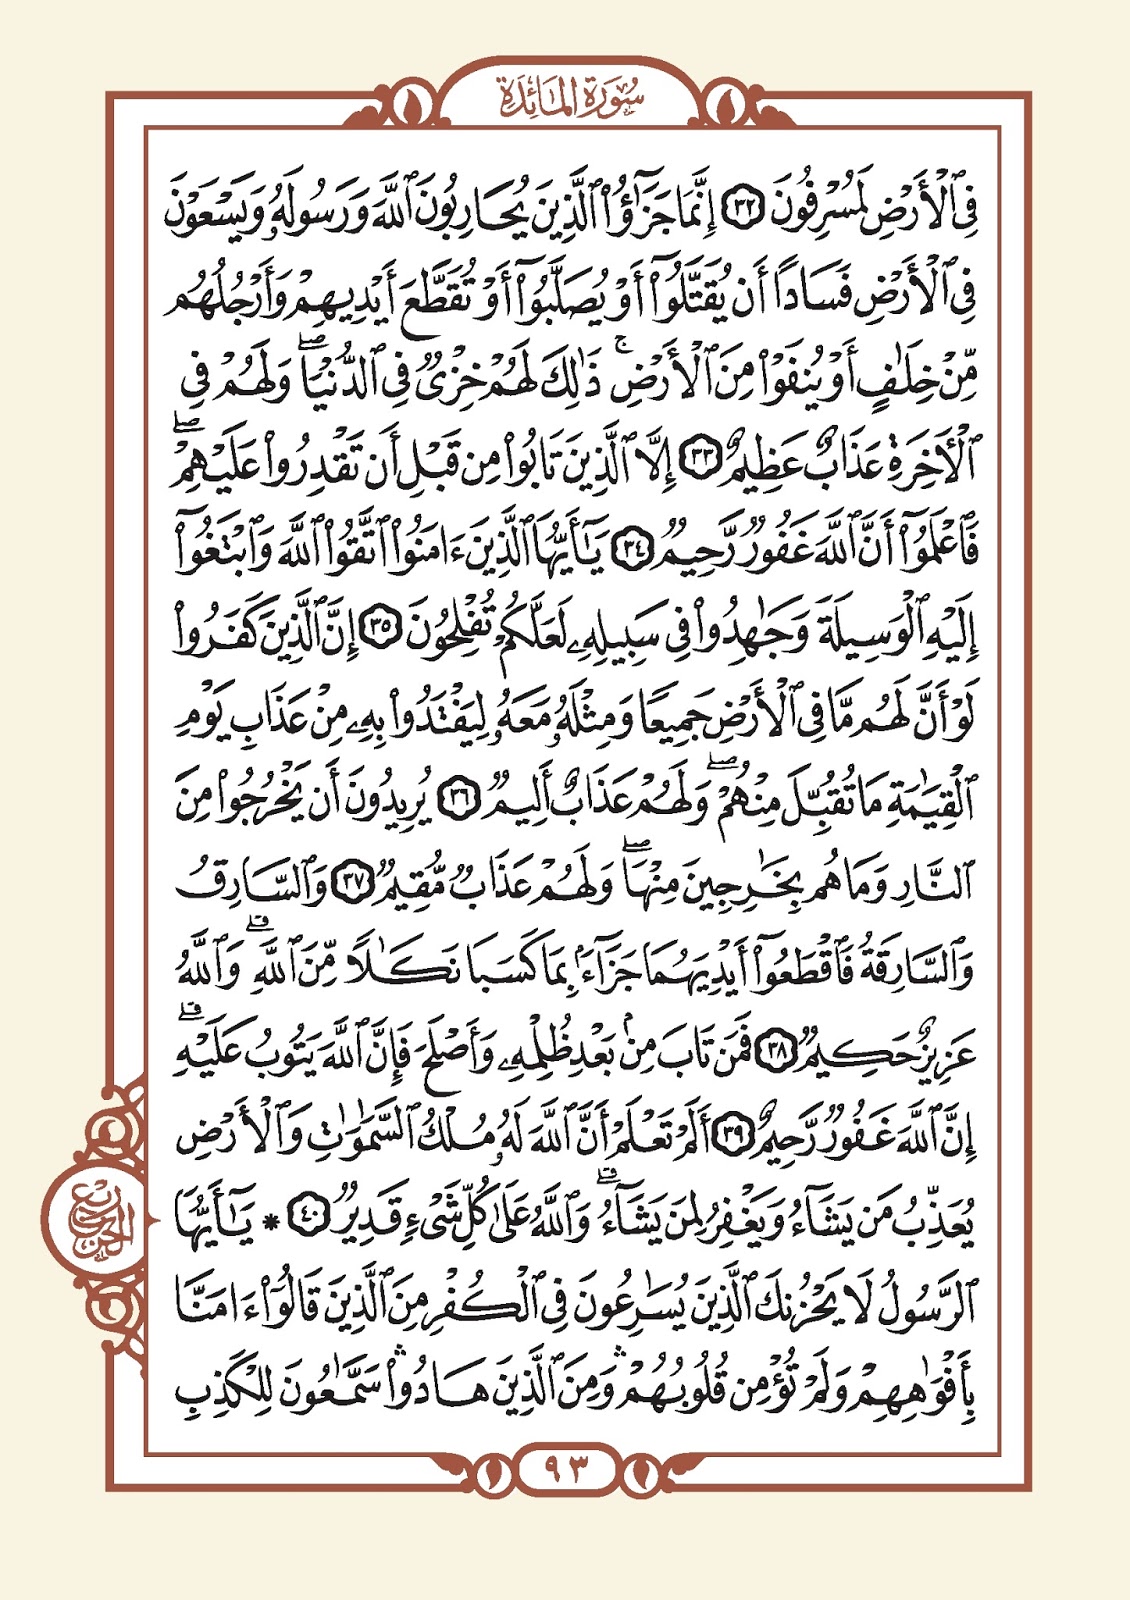 سُورَةُ المَائِدَةِ
فِي ٱلْأَرْضِ لَمُسْرِفُونَ ٣٢ إِنَّمَا جَزَٰٓؤُا۟ ٱلَّذِينَ يُحَارِبُونَ ٱللَّهَ وَرَسُولَهُۥ وَيَسْعَوْنَ
فِي ٱلْأَرْضِ فَسَادًا أَن يُقَتَّلُوٓا۟ أَوْ يُصَلَّبُوٓا۟ أَوْ تُقَطَّعَ أَيْدِيهِمْ وَأَرْجُلُهُم
مِّنْ خِلَٰفٍ أَوْ يُنفَوْا۟ مِنَ ٱلْأَرْضِ ۚ ذَٰلِكَ لَهُمْ خِزْىٌ فِي ٱلدُّنْيَا ۖ وَلَهُمْ فِي
ٱلْأَخِرَةِ عَذَابٌ عَظِيمٌ ٣٣ إِلَّا ٱلَّذِينَ تَابُوا۟ مِن قَبْلِ أَن تَقْدِرُوا۟ عَلَيْهِمْ ۖ
فَٱعْلَمُوٓا۟ أَنَّ ٱللَّهَ غَفُورٌ رَّحِيمٌ ٣٤ يَٰٓأَيُّهَا ٱلَّذِينَ ءَامَنُوا۟ ٱتَّقُوا۟ ٱللَّهَ وَٱبْتَغُوٓا۟
إِلَيْهِ ٱلْوَسِيلَةَ وَجَٰهِدُوا۟ فِي سَبِيلِهِۦ لَعَلَّكُمْ تُفْلِحُونَ ٣٥ إِنَّ ٱلَّذِينَ كَفَرُوا۟
لَوْ أَنَّ لَهُم مَّا فِي ٱلْأَرْضِ جَمِيعًا وَمِثْلَهُۥ مَعَهُۥ لِيَفْتَدُوا۟ بِهِۦ مِنْ عَذَابِ يَوْمِ
ٱلْقِيَٰمَةِ مَا تُقُبِّلَ مِنْهُمْ ۖ وَلَهُمْ عَذَابٌ أَلِيمٌ ٣٦ يُرِيدُونَ أَن يَخْرُجُوا۟ مِنَ
ٱلنَّارِ وَمَا هُم بِخَٰرِجِينَ مِنْهَا ۖ وَلَهُمْ عَذَابٌ مُّقِيمٌ ٣٧ وَٱلسَّارِقُ
وَٱلسَّارِقَةُ فَٱقْطَعُوٓا۟ أَيْدِيَهُمَا جَزَآءًۢ بِمَا كَسَبَا نَكَٰلًا مِّنَ ٱللَّهِ ۗ وَٱللَّهُ
عَزِيزٌ حَكِيمٌ ٣٨ فَمَن تَابَ مِنۢ بَعْدِ ظُلْمِهِۦ وَأَصْلَحَ فَإِنَّ ٱللَّهَ يَتُوبُ عَلَيْهِ ۗ
إِنَّ ٱللَّهَ غَفُورٌ رَّحِيمٌ ٣٩ أَلَمْ تَعْلَمْ أَنَّ ٱللَّهَ لَهُۥ مُلْكُ ٱلسَّمَٰوَٰتِ وَٱلْأَرْضِ
يُعَذِّبُ مَن يَشَآءُ وَيَغْفِرُ لِمَن يَشَآءُ ۗ وَٱللَّهُ عَلَىٰ كُلِّ شَىْءٍ قَدِيرٌ ٤٠ * يَٰٓأَيُّهَا
ٱلرَّسُولُ لَا يَحْزُنكَ ٱلَّذِينَ يُسَٰرِعُونَ فِي ٱلْكُفْرِ مِنَ ٱلَّذِينَ قَالُوٓا۟ ءَامَنَّا
بِأَفْوَٰهِهِمْ وَلَمْ تُؤْمِن قُلُوبُهُمْ ۛ وَمِنَ ٱلَّذِينَ هَادُوا۟ ۛ سَمَّٰعُونَ لِلْكَذِبِ
٩٣